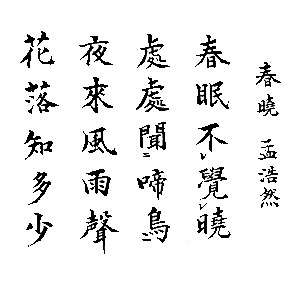 春曉 孟浩然
春眠不覺曉
處處聞啼鳥
夜來風雨聲
花落知多少